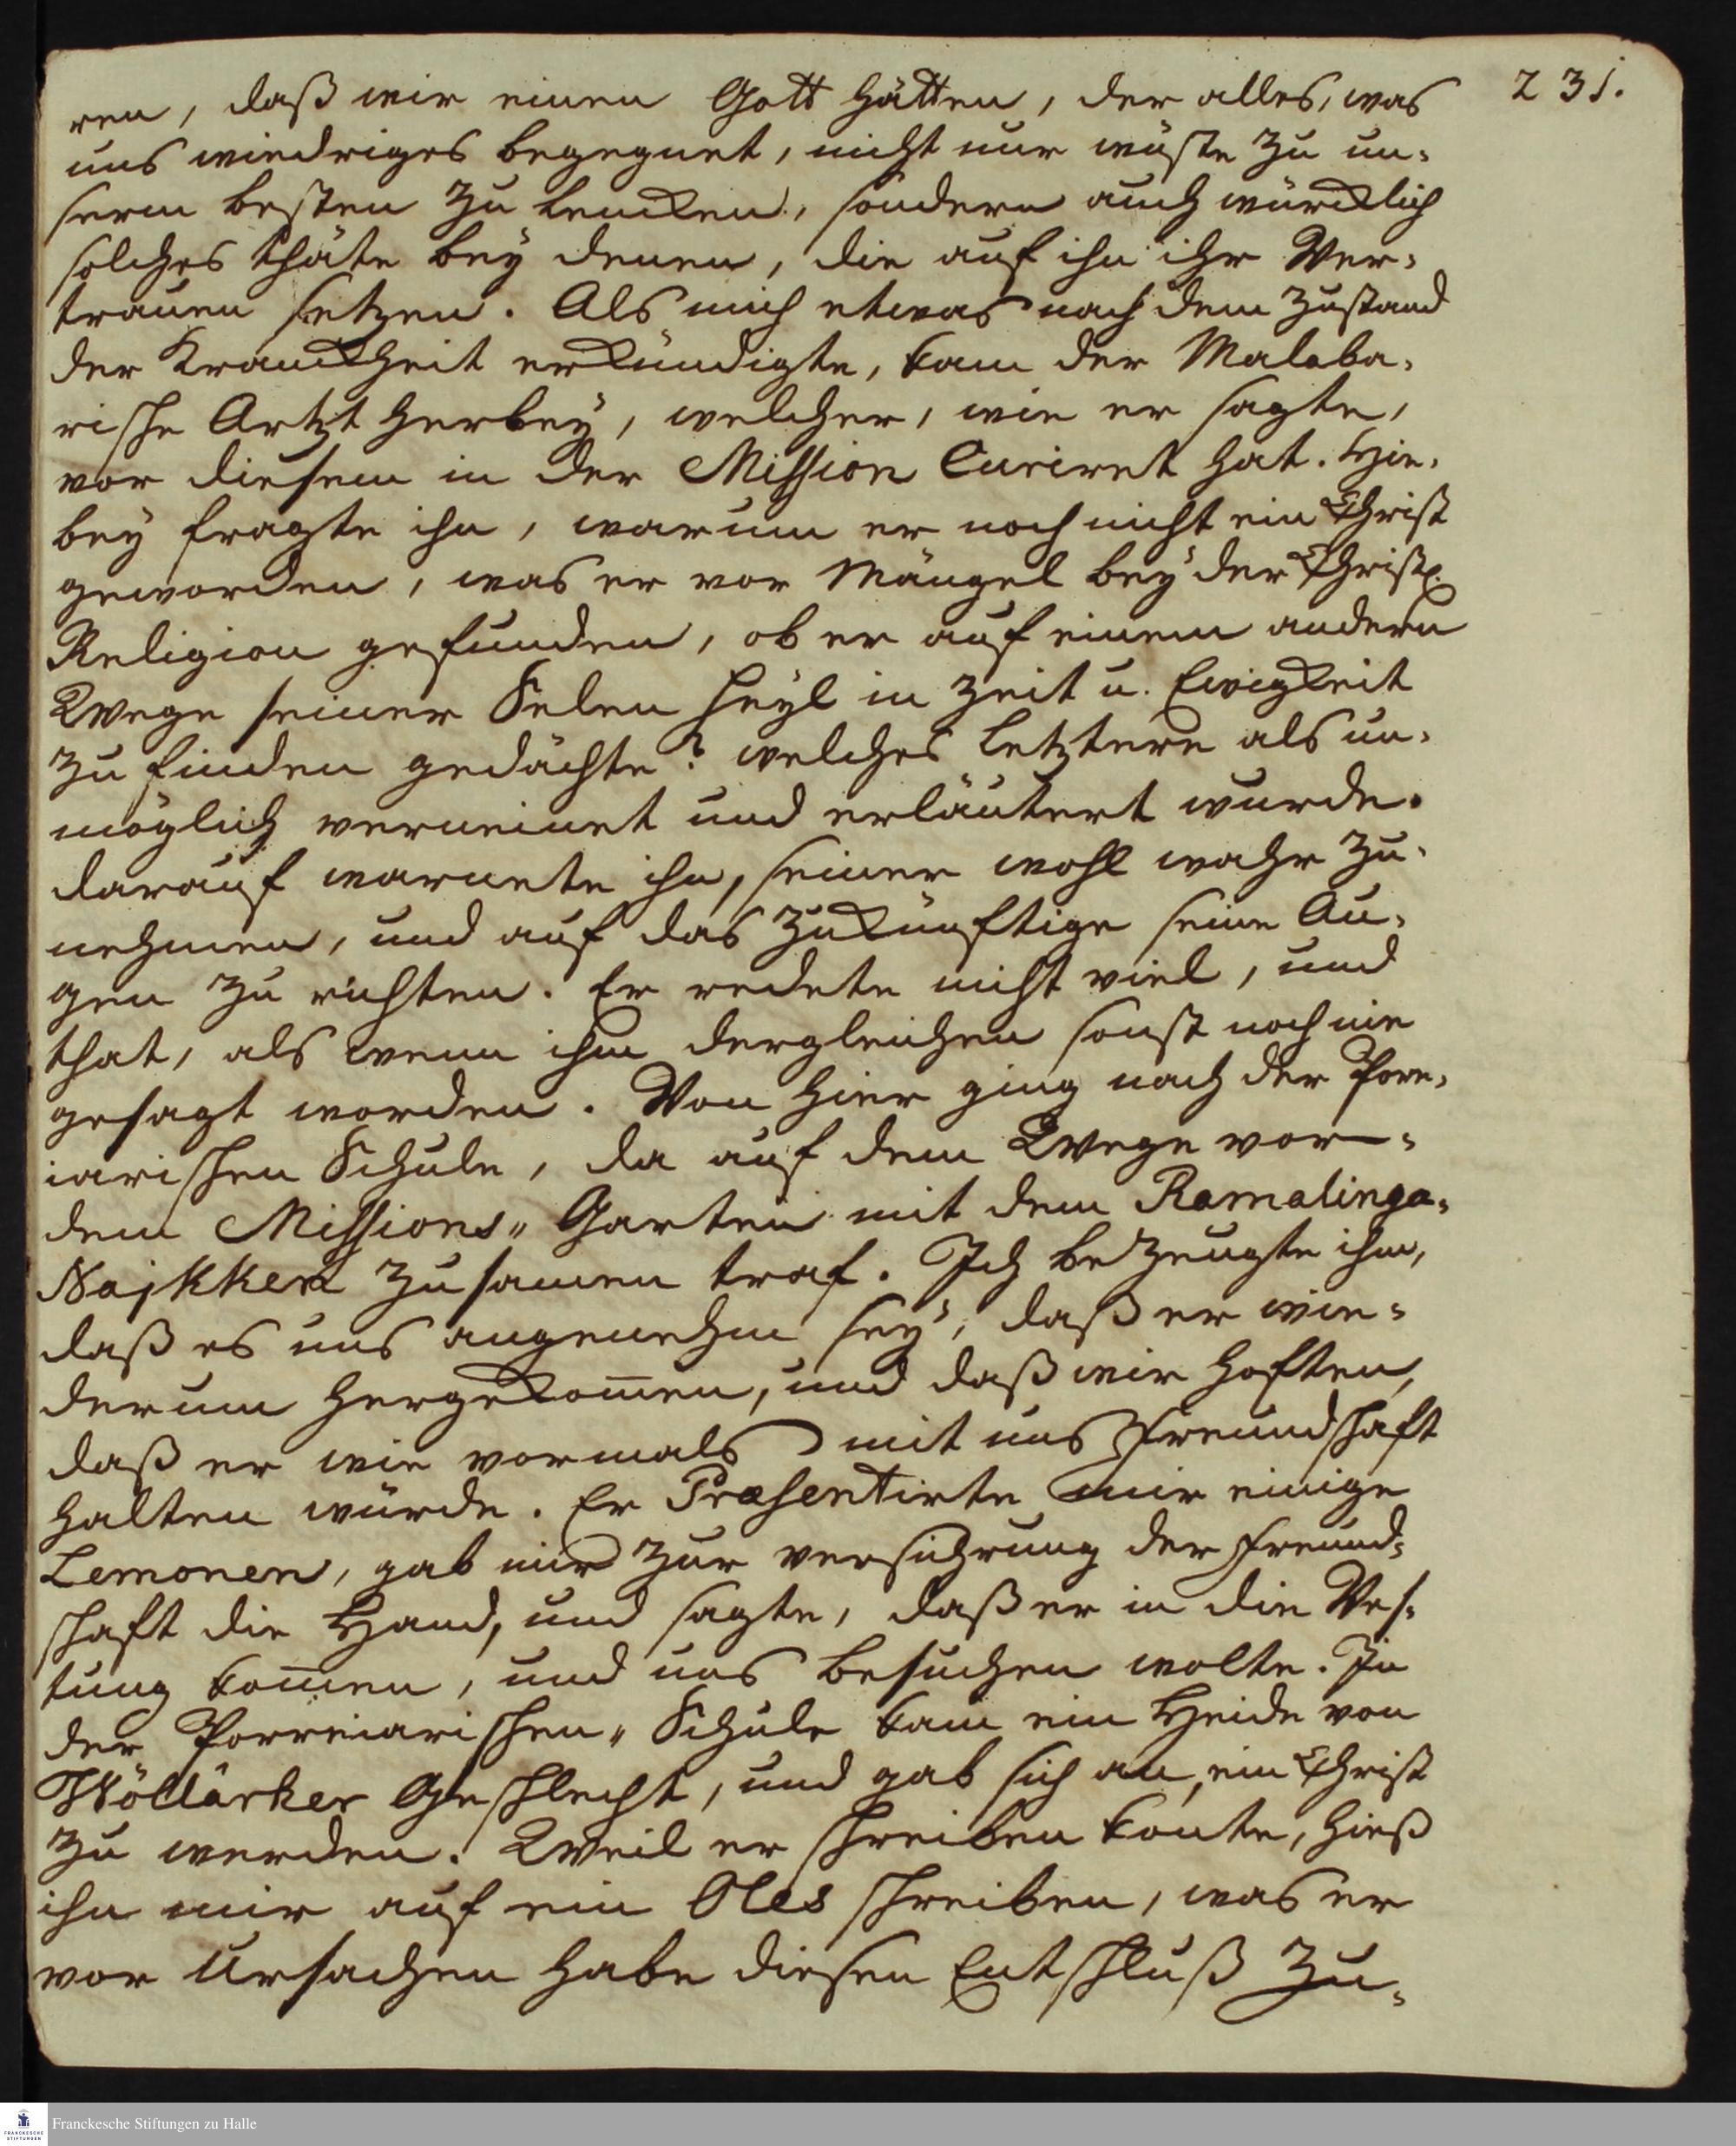 231.
ren, daß wir einen Gott hätten, der alles, was
uns wiedriges begegnet, nicht nur wüste zu un-
serm besten zu lencken, sondern auch würcklich
solches thäte bey denen, die auf ihn ihr Ver-
trauen setzen. Als mich etwas nach dem Zustand
der Kranckheit erkundigte, kam der Malaba-
rische Artzt herbey, welcher, wie er sagte,
vor diesem in der Mission Curiret hat. Hie-
bey fragte ihn, warum er noch nicht ein Christ
geworden, was er vor Mängel bey der Christl.
Religion gefunden, ob er auf einem andern
Wege seiner Selen Heyl in Zeit u. Ewigkeit
zu finden gedächte? welches letztere als un-
möglich verneinet und erläutert wurde.
darauf warnete ihn, seiner wohl wahr zu-
nehmen, und auf das Zukünftige seine Au-
gen zu richten. Er redete nicht viel, und
that, als wenn ihm dergleichen sonst noch nie
gesagt worden. Von hier ging nach der Porre-
iarischen Schule, da auf dem Wege vor-
dem Missions" Garten mit dem Ramalinga-
Najkken zusamen traf. Ich bezeugte ihm,
daß es uns angenehm sey, daß er wie-
derum hergekom̅en, und daß wir hoften,
daß er wie vormals mit uns Freundschaft
halten würde. Er Præsentirte mir einige
Lemonen, gab mir zur versicherung der Freund-
schaft die Hand, und sagte, daß er in die Ves-
tung kom̅en, und uns besuchen wolte. In
der Porreiarischen" Schule kam ein Heide von
Wöllârker Geschlecht, und gab sich an, ein Christ
zu werden. Weil er schreiben konte, hieß
ihn mir auf ein Oles schreiben, was er
vor Ursachen habe diesen Entschluß zu-
Franckesche Stiftungen zu Halle
FRANCKESCHE
STIFTUNGEN